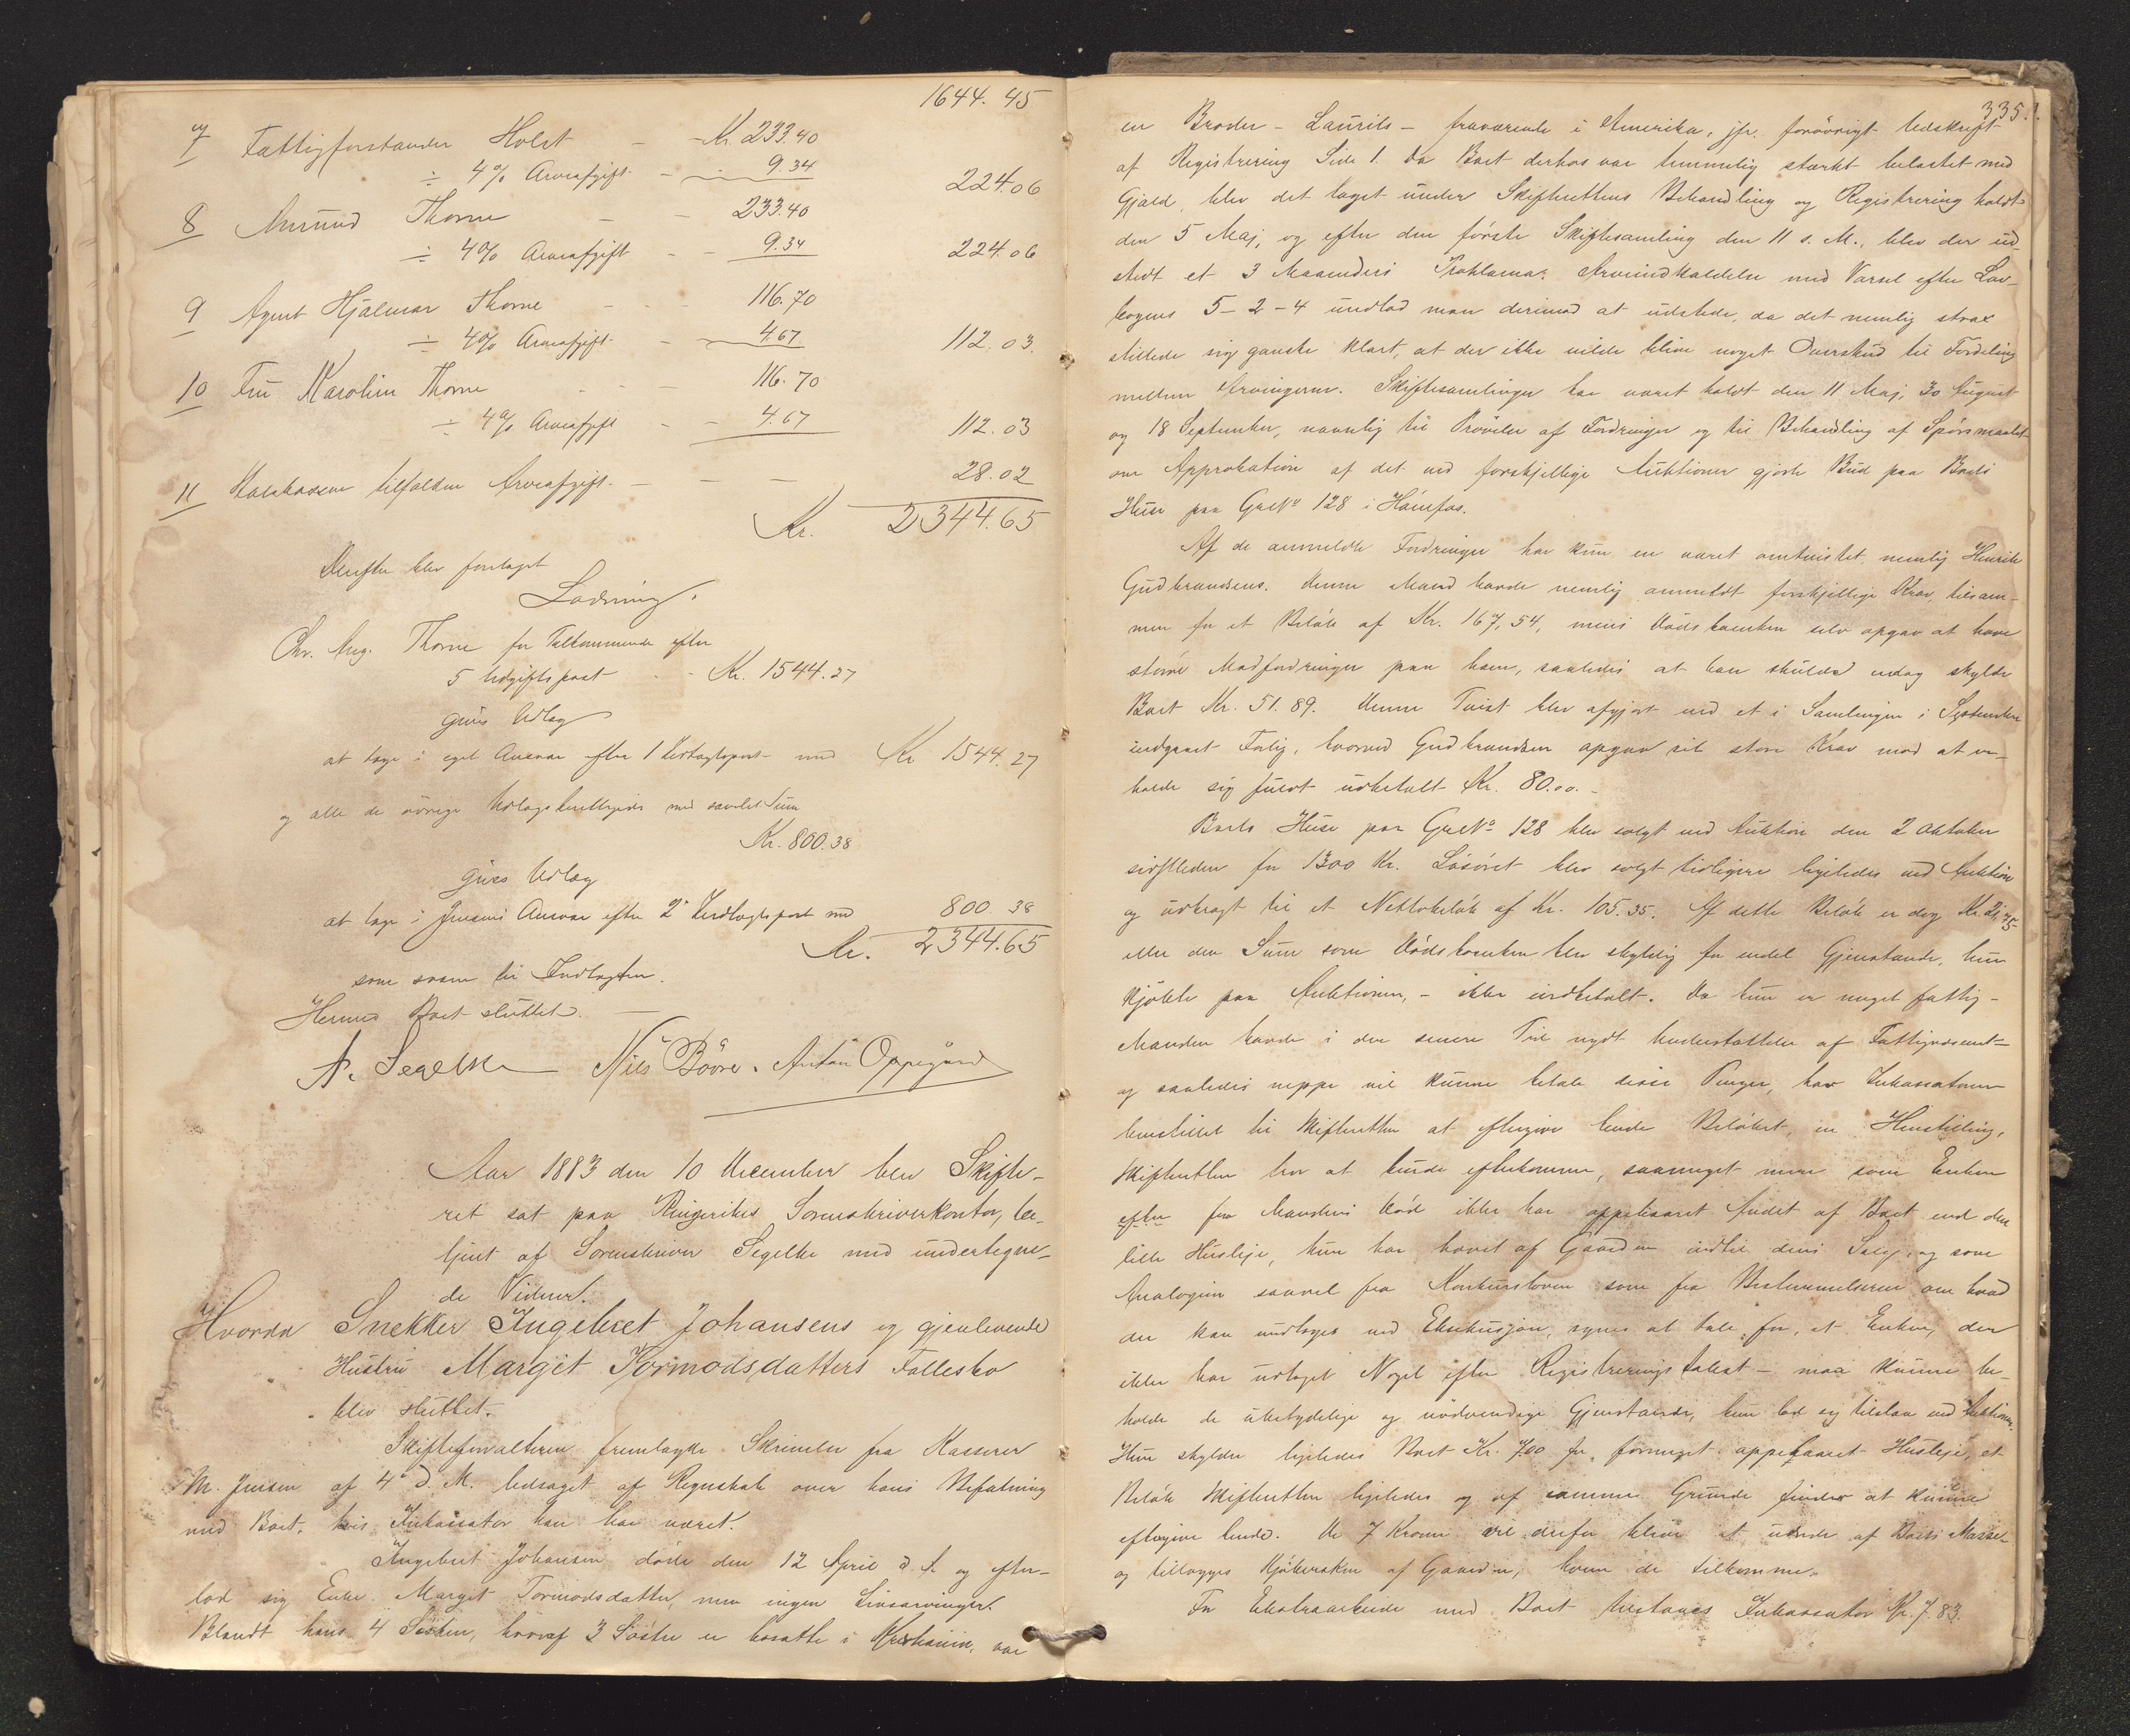 1644. 45
7 Fattigforstander Holst - - Kr. 233.40
÷ 4% Arveafgift - - 9.34 224.06
8 Amund Thorne - - 233.40
÷ 4% Arveafgift - - 9.34 224.06
9 Agent Hjalmar Thorne - - - 116.70
÷ 4% Arveafgift - - 4.67 112.03.
10 Fru Karoline Thorne - - - 116.70
÷ 4% Arveafgift - - 4.67 112.03
11 Statskassen tilfalden Arveafgift - - - 28.02
Kr. 2344.65
Derefter blev foretaget
Lodning.
Chr. Aug. Thorne for Tilkommende efter
5 Udgiftspost - - Kr. 1544.27
gives Udlæg
at tage i eget Ansvar efter 1 Indtægtspost med Kr 1544.27
og alle de øvrige Udlægsberettigede med samlet Sum
Kr. 800.38
gives Udlæg
at tage i Jensens Ansvar efter 2' Indtægtspost med 800 38
Kr. 2344.65
som svarer til Indtægten.
Hermed Boet sluttet. —
A. Segelke Nils Bövre. Anton Oppegård
Aar 1883 den 10 December blev Skifte-
ret sat paa Ringerikes Sorenskriverkontor, be-
tjent af Sorenskriver Segelke med undertegne-
de Vidner.
Hvorda Snekker Ingebret Johansens og gjenlevende
Hustru Margit Tormodsdatters Fællesbo
blev sluttet.
Skifteforvalteren fremlagde Skrivelse fra Kasserer
M. Jensen af 4' d. M. ledsaget af Regnskab over hans Befatning
med Boet, hvis Inkassator han har været.
Ingebret Johansen døde den 12 April d. A. og efter-
lod sig Enke Margit Tormodsdatter, men ingen Livsarvinger.
Blandt hans 4 Søsken, hvoraf 3 Søstre er bosatte i Kristiania, var
335.
en Broder - Laurits - fraværende i Amerika, jfr. forøvrigt Udskrift
af Registrering Side 1. Da Boet derhos var temmelig stærkt belastet med
Gjæld, blev det taget under Skifterettens Behandling og Registrering holdt
den 5 Maj, og efter den første Skiftesamling den 11 s. M., blev der ud-
stedt et 3 Maaneders Proklama. Arveindkaldelse med Varsel efter Lov-
bogens 5-2-4 undlod man derimod at udstede, da det nemlig strax
stillede sig ganske klart, at der ikke vilde blive noget Overskud til Fordeling
mellem Arvingerne. Skiftesamlinger har været holdt den 11 Maj, 30 August
og 18 September, navnlig til Prøvelse af Fordringer og til Behandling af Spørsmaalet
om Approbation af det ved forskjellige Auktioner gjorte Bud paa Boets
Huse paa GrNo 128 i Hønefos.
Af de anmeldte Fordringer har kun en været omtvistet, nemlig Henrik
Gudbrandsens. Denne Mand havde nemlig anmeldt forskjellige Krav, tilsam-
men for et Beløb af Kr. 167,54, mens Dødsboenken selv opgav at have
større Modfordringer paa ham, saaledes at han skulde endog skylde
Boet Kr. 51.89. Denne Tvist blev afgjort ved et i Samlingen i September
indgaaet Forlig, hvorved Gudbrandsen opgav sit store Krav mod at er-
holde sig fuldt udbetalt Kr. 80.00. -
Boets Huse paa GrNo 128 blev solgt ved Auktion den 2 Oktober
sidstleden for 1300 Kr. Løsøret blev solgt tidligere ligeledes ved Auktion
og udbragt til et Nettobeløb af Kr. 105.35. Af dette Beløb er dog Kr. 21,75
eller den Sum som Dødsboenken blev skyldig for endel Gjenstande, hun
kjøbte paa Auktionen, - ikke indbetalt. Da hun er meget fattig -
Manden havde i den senere Tid nydt Understøttelse af Fattigvæsenet -
og saaledes neppe vil kunne betale disse Penger, har Inkassatoren
henstillet til Skifteretten at eftergive hende Beløbet, en Henstilling,
Skifteretten tror at burde efterkomme, saameget mere som Enken
efter fra Mandens Død ikke har oppebaaret Andet af Boet end den
lille Husleje, hun har havet af Gaarden indtil dens Salg, og som
Analogien saavel fra Konkursloven som fra Bestemmelserne om hvad
der kan undtages ved Eksekusjon, synes at tale for, at Enken, der
ikke har udtaget Noget efter Registreringstakst - maa kunne be-
holde de ubetydelige og nødvendige Gjenstande, hun lod sig tilslaa ved Auktionen.
Hun skylder ligeledes Boet Kr. 7.00 for formeget oppebaaret Husleje, et
Beløb Skifteretten ligeledes og af samme Grunde finder at kunne
eftergive hende. De 7 Kroner vil derfor blive at udrede af Boets Masse
og tillægges Kjøbersken af Gaarden, hvem de tilkommer.
For Ekstraarbeide med Boet tilstaaes Inkassator Kr. 7.83.